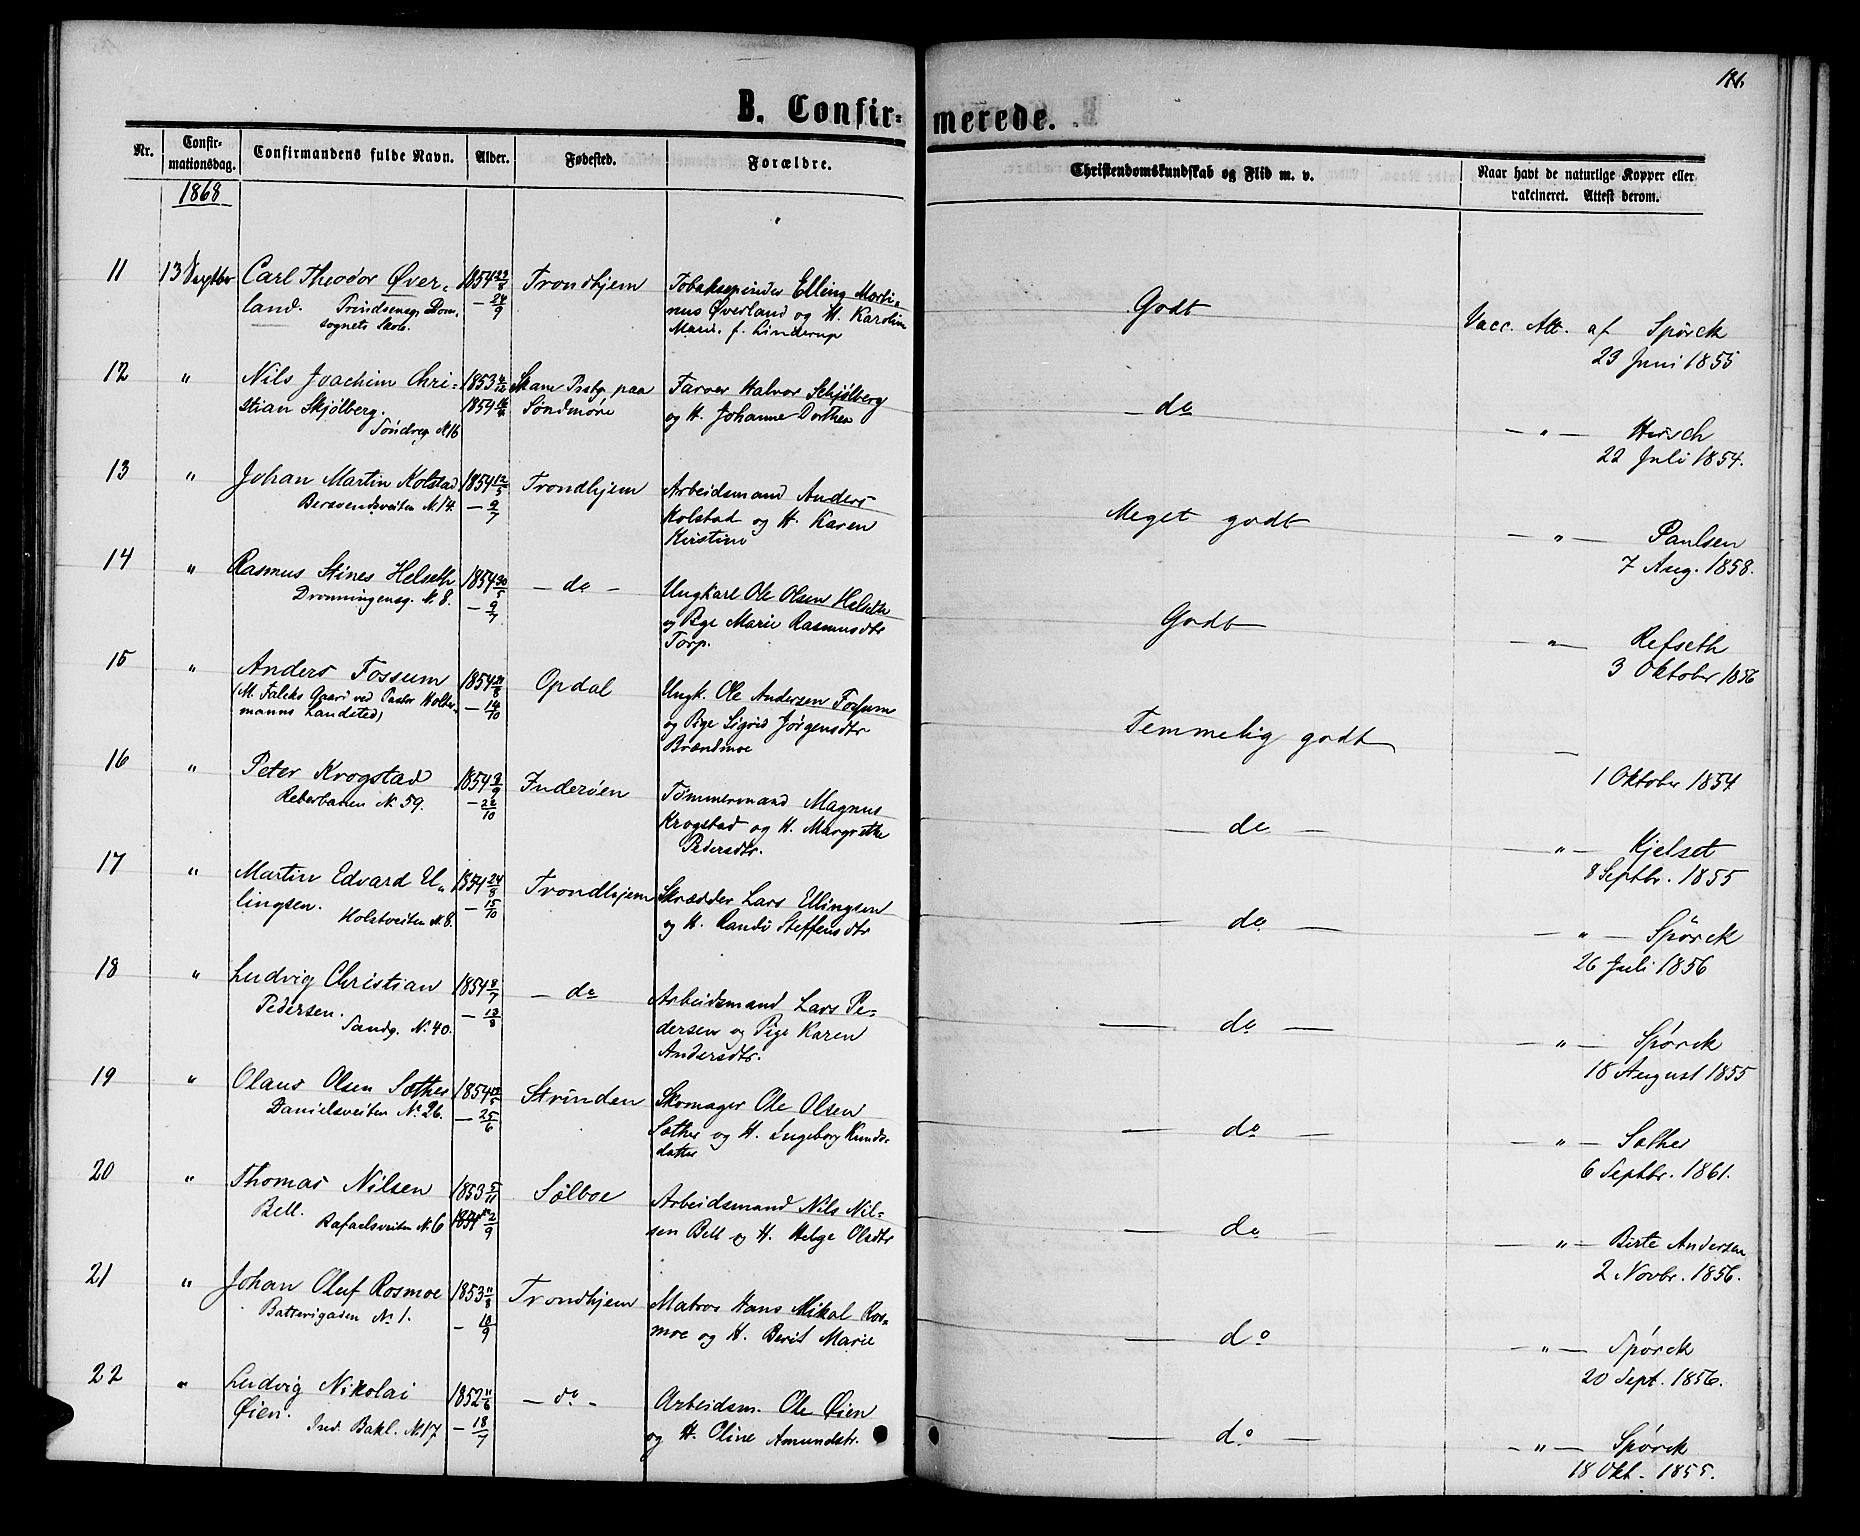 186.
B. Confirmerede.
Nr.
Confirmationsdag.
Confirmandens fulde Navn.
Alder.
Fødested.
Forældre.
Christendomskundskab og Flid m. v.
Naar havt de naturlige Kopper eller vakcineret. Attest derom.
1868
11 13 Septbr Carl Theodor Øver- 1854 23/8 Trondhjem Tobakspinder Elling Marti- Godt Vacc. Att. af Spørck
land. Prindsensg. Dom. — 24/9 nus Øverland og H. Karolin 23 Juni 1855
sognets Skole. Marie f. Linderup
12 " Nils Joachim Chri- 1853 Prstg. paa Farver Halvor Schjølberg — do — " — Hirsch
stian Skjølberg. 1854 Søndmøre og H. Johanne Dorthea 22 Juli 1854.
Søndreg. N. 16
13 " Johan Martin Kolstad 1854 12/5 Trondhjem Arbeidsmand Anders Meget godt — " — Paulsen
Bersvendsveiten N. 14. — 9/7 Kolstad og H. Karen 7 Aug. 1858.
Kirstine
14 " Rasmus Stines Helseth 1854 30/5 — do — Ungkarl Ole Olsen Helseth Godt — " — Refseth
Dronningensg. N. 8. — 9/7 og Pige Marie Rasmusdtr 3 Oktober 1856
Torp.
15 " Anders Fossum 1854 Opdal Ungk. Ole Andersen Fossum Temmelig godt —
(M. Falcks Gaard ved Pastor Holter- — 14/10 og Pige Sigrid Jørgensdtr 1 Oktober 1854
manns Landsted) Brændmoe
16 " Peter Krogstad 1854 9/9 Inderøen Tømmermand Magnus — do — — " — Kjelset
Reberbanen N. 59. — 22/10 Krogstad og H. Margrethe 8 Septbr. 1855
Pedersdtr.
17 " Martin Edvard El- 1854 24/8 Trondhjem Skrædder Lars Ellingsen — do — — " — Spørck
lingsen. Holstveiten N. 8. — 15/10 og H. Randi Steffensdtr 26 Juli 1856
18 " Ludvig Christian 1854 8/7 — do Arbeidsmand Lars Pe- — do — — " — Spørck
Pedersen. Sandg. N. 40. — 13/8 dersen og Pige Karen 18 August 1855
Andersdtr.
19 " Olaus Olsen Sæther 1854 Strinden Skomager Ole Olsen — do — — " — Sæther
Danielsveiten N. 26. — 25/6 Sæther og H. Ingeborg Knuds- 6 Septbr. 1861.
datter
20 " Thomas Nilsen 1853 5/11 Sælboe Arbeidsmand Nils Nil- — do — — " — Birte Andersen
Bell. Rafaelsveiten N. 6 1854 sen Bell og H. Helge Olsdtr 2 Novbr. 1856.
21 " Johan Oluf Rosmoe 1853 11/8 Trondhjem Matros Hans Mikal Ros- — do — " — Spørck
Batterigaden N. 1. — 18/9 moe og H. Berit Marie 20 Sept. 1856.
22 " Ludvig Nikolai 1852 11/6 — do — Arbeidsm. Ole Øien — do — — " — Spørck
Øien. Ind. Bakl. N. 17 — 18/7 og H. Oline Amundstr. 18 Okt. 1855.